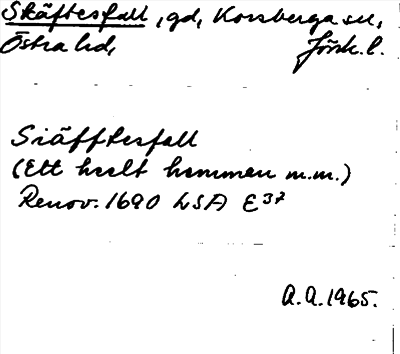 Skäftesfall, gd, Korsberga sn,
Östra hd, Jönk. l.
Siäfftesfall
(Ett heelt hemman m.m.)
Renov. 1690 LSA E 37
A.A. 1965.